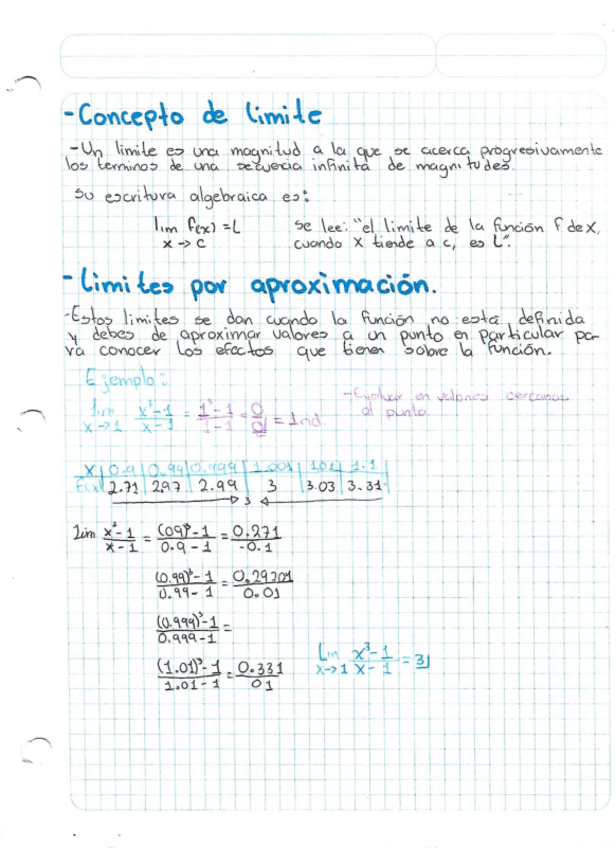 -Concepto de limite
-Un limite es una magnitud a la que se acerca progresivamente
los terminos de una secuencia infinita de magnitudes.
Su escritura algebraica es:
lim f(x) = L se lee: "el limite de la función f de x,
x → c cuando x tiende a c, es L".
-Limites por aproximación.
-Estos limites se dan cuando la función no está definida
y debes de aproximar valores a un punto en particular pa-
ra conocer los efectos que tienen sobre la función.
Ejemplo:
lim x→1 x³-1/x-1 = 1³-1/1-1 = 0/0 = Ind.
-Evaluar en valores cercanos
al punto.
x 0.9 0.99 0.999 1.001 1.01 1.1
F(x) 2.71 2.97 2.99 3 3.03 3.31
3
Lim x³-1/x-1 = (0.9)³-1/0.9-1 = 0.271/-0.1
(0.99)³-1/0.99-1 = 0.29701/0.01
(0.999)³-1/0.999-1 =
(1.01)³-1/1.01-1 = 0.331/01
Lim x→1 x³-1/x-1 = 3